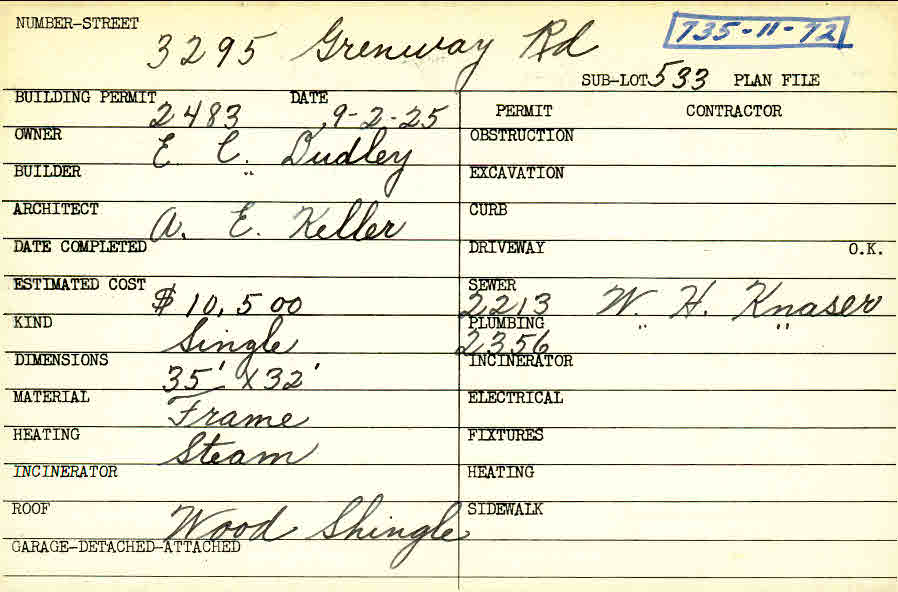 NUMBER-STREET 3295 Grenway Rd 735-11-72
SUB-LOT 533 PLAN FILE
BUILDING PERMIT 2483 DATE 9-2-25
PERMIT CONTRACTOR
OWNER E. C. Dudley
OBSTRUCTION
BUILDER "
EXCAVATION
ARCHITECT A. E. Keller
CURB
DATE COMPLETED
DRIVEWAY O.K.
ESTIMATED COST $10,500
SEWER 2213 W. H. Knaser
KIND Single
PLUMBING 2356 " "
DIMENSIONS 35' X 32'
INCINERATOR
MATERIAL Frame
ELECTRICAL
HEATING Steam
FIXTURES
INCINERATOR
HEATING
ROOF Wood Shingle
SIDEWALK
GARAGE-DETACHED-ATTACHED